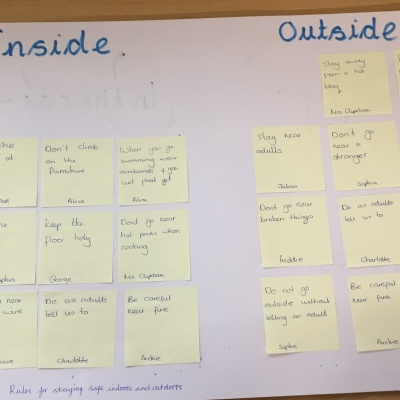 Inside
Outside
Stay away
from a hot
Nia Chetan
the
Don't climb
on the
furniture
Alice
When you go
swimming wear
armbands if you
cant float yet
Alice
Stay near
adults
Julian
Don't go
near a
stranger
Sophia
Keep the
floor holy
George
Dont go near
hot pans when
cooking
Dont go near
broken things
Freddie
Do as adults
tell us to
Charlotte
near
wire
Do as adults
tell us to
Charlotte
Be careful
near fire
Archie
Do not go
outside without
telling an adult
Sophia
Be careful
near fire
Archie
Rules for staying safe indoors and outdoors